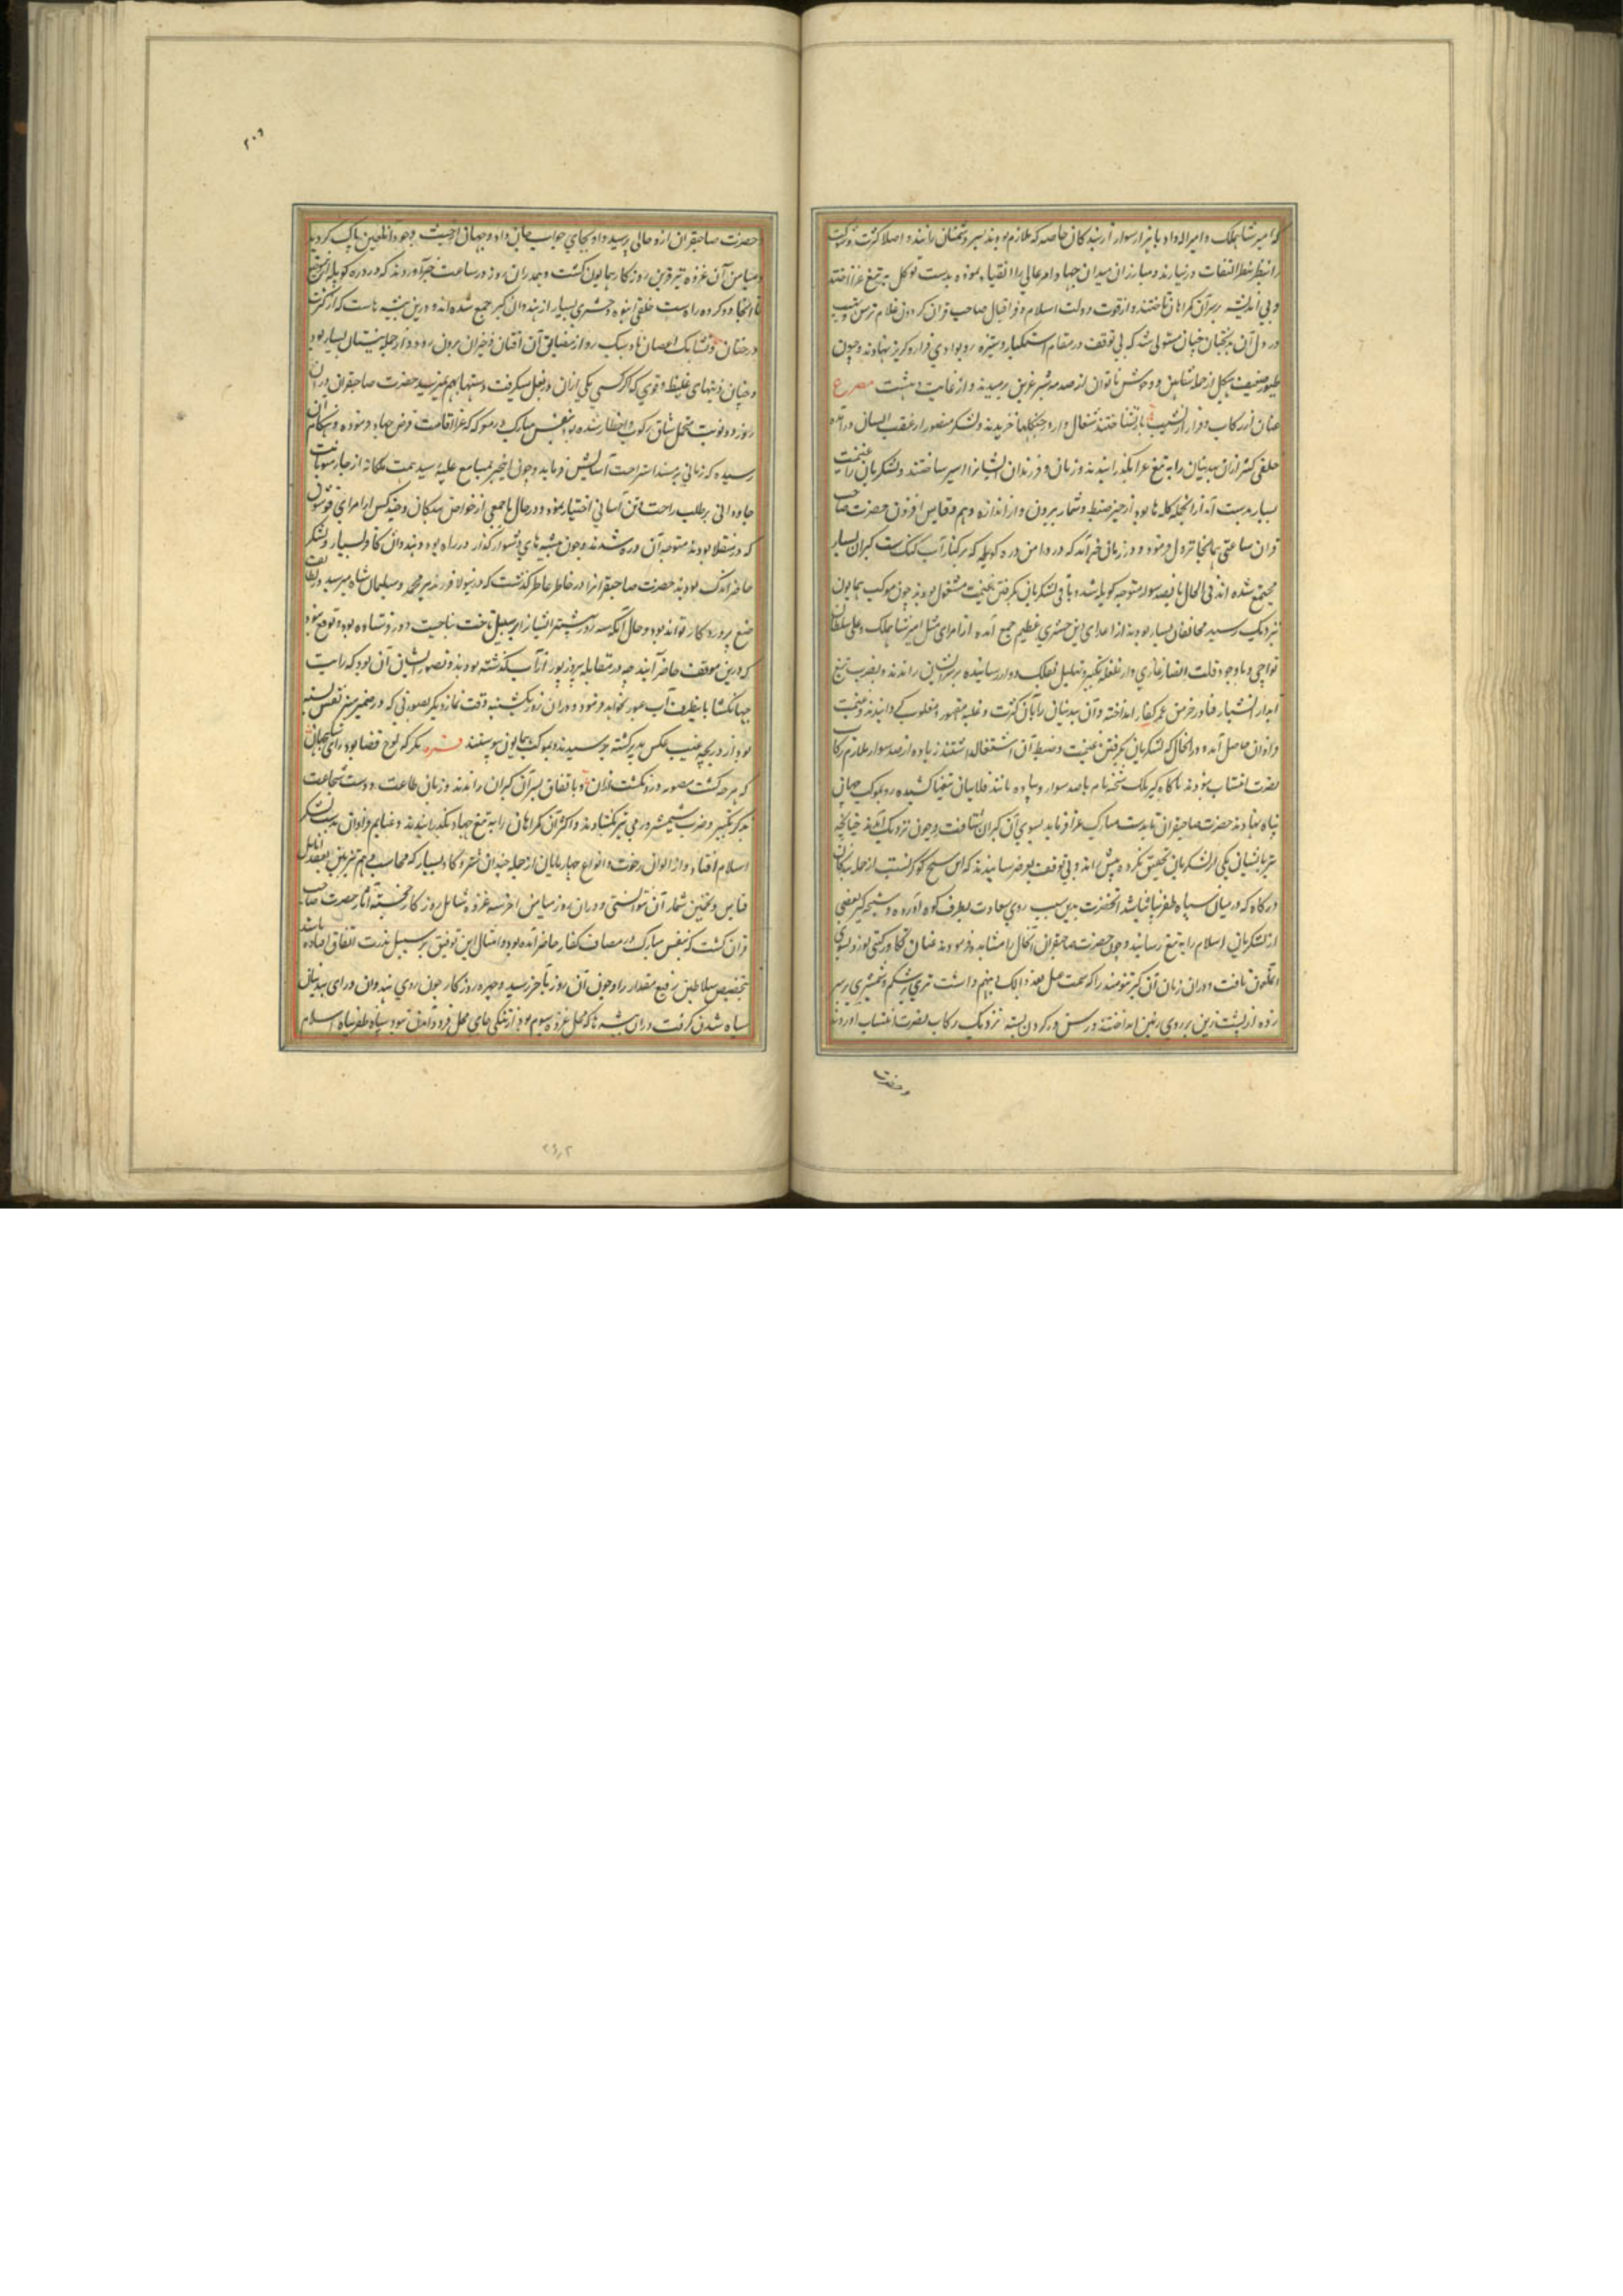 که امیر شاهملک و امیر اله داد با هزار سوار از بندگان خاصه که ملازم بودند بسر دشمنان رانند و اصلا کثرت و شوکت
را بنظر التفات در نیارند و مبارزان میدان جهاد امر عالی را انقیاد نموده بدست توکل تیغ غزا آخته
و بی اندیشه بر سر آن گمراهان تاختند و از قوت دولت اسلام و فر اقبال صاحب قران گردون غلام ترس و هیبت
در دل آن بدبختان چنان مستولی شد که بی توقف در مقام استکبار و ستیزه رو بوادی فرار و گریز نهادند و چون
طیور ضعیف هیکل از حمله شاهین و وحوش ناتوان از صدمه شیر عرین برمیدند و از غایت دهشت مصرع
عنان از رکاب و فراز از نشیب باز نشناختند شغال وار در جنگلها خزیدند و لشکر منصور از عقب ایشان درآمده
خلقی کثیر از آن بیدینان را به تیغ غزا بگذرانیدند و زنان و فرزندان ایشان را اسیر ساختند و لشکریان را غنیمت
بسیار بدست آمد از آنجمله گله ها بود از حیز ضبط و شمار بیرون و از اندازه وهم و قیاس افزون حضرت صاحب
قران ساعتی همانجا نزول فرمود و در زمان خبر آمد که در دامن دره کوپله که بر کنار آب گنگ است گبران بسیار
مجتمع شده اند فی الحال با پانصد سوار متوجه کوپله شد و باقی لشکریان بگرفتن غنیمت مشغول بودند چون موکب همایون
نزدیک رسید مخالفان بسیار بودند از اعدای دین حشری عظیم جمع آمده از امرای مثل امیر شاهملک و علی سلطان
تواچی و با وجود قلت انصار غازی وار غلغله تکبیر و تهلیل بفلک دوار رسانیده بر سر ایشان راندند و بضرب تیغ
آبدار آتشبار فنا در خرمن عمر کفار انداخته و آن بیدینان را با آن کثرت و غلبه مقهور و مغلوب گردانیدند و غنیمت
فراوان حاصل آمد و در آنحال که لشکریان بگرفتن غنیمت و ضبط آن اشتغال داشتند زیاده از صد سوار ملازم رکاب
نصرت انتساب نبودند ناگاه گبر ملک شیخه نام با صد سوار و پیاده مانند فدائیان تیغها کشیده رو بموکب جهان
پناه نهادند حضرت صاحبقران تا بدست مبارک غزا فرماید بسوی آن گبران شتافت و چون نزدیک آمدند چنانچه
بتیر با نشان یکی از لشکریان تحقیق نکرده پیش آمد و بی توقف بعرض رسانید که این شیخ کوکر است از جمله بندگان
درگاه که در میان سپاه ظفر پناه میباشد آنحضرت بدین سبب روی سعادت بطرف کوه آورد و شیخه گبر بعضی
از لشکریان اسلام را به تیغ رسانید و چون حضرت صاحبقران آنحال را مشاهده فرمودند عنان تکاور گیتی نورد بسوی
آن ملعون تافت و در آن زمان آن گبر تنومند را که سمت داشت تیری بر شکم و شمشیری بر سر
زده از پشت زین بر روی زمین انداختند و رسن در گردن بسته نزدیک رکاب نصرت انتساب آوردند
و حضرت
۲۰۶
حضرت صاحبقران ازو حالی پرسید و او بجای جواب جان داد و جهان از خبث وجود آن لعین پاک گردید
و میامن آن غزوه نیز قرین روزگار همایون گشت و هم در آن روز در ساعت خبر آوردند که در دره کوپله از موضع
تا آنجا دو کروه راه است خلقی انبوه و حشری بسیار از هندوان گبر جمع شده اند و درین بیشه هاست که از کثرت
درختان و تشابک اغصان باد سبک رو از مضایق آن افتان و خیزان بیرون رود و از جمله نیستان بسیار بود
و چنان نی های غلیظ و قوی که اگر کسی یکی از آن در بغل میگرفت دستها بهم نمیرسید حضرت صاحبقران در آن
روز دو نوبت متحمل مشاق رکوب و اخطار شده بود بنفس مبارک در معرکه غزا اقامت فرض جهاد فرموده و هنگام آن
رسیده که زمانی بر مسند استراحت آسایش فرماید و چون این خبر بمسامع علیه رسید همت ملکانه از جا
جاودانی بر طلب راحت تن آسانی اختیار نمود و در حال با جمعی از خواص بندگان و چند کس از امرای قوشون
که در منقلا بودند متوجه آن دره شدند و چون بیشه های دشوار گذار در راه بود و هندوان کافر بسیار و لشکر
حاضر اندک بودند حضرت صاحبقران را در خاطر عاطر گذشت که درینولا فرزند پیر محمد و سلیمان شاه میرسید لطایف
صنع پروردگار تواند بود و حال آنکه سه روز پیشتر ایشان را بر سبیل تاخت بناحیت دور فرستاده بود و توقع نبود
که درین موقف حاضر آیند چه در مقابله پیروز پور از آب گذشته بودند و تصور ایشان آن بود که رایت
جهانگشا باینطرف آب عبور نخواهد فرمود و در آن روز یکشنبه وقت نماز دیگر بصورتی که در ضمیر منیر نقش بسته
بود از دریچه غیب عکس پذیر گشته برسیدند و بموکب همایون پیوستند مگر که لوح قضا بود رای شاه جهان
که هرچه گشت مصور درو نگشت خلاف و باتفاق بر سر آن گبران راندند و زبان طاعت و دست شجاعت
بذکر تکبیر و ضرب شمشیر و رمی تیر بگشادند و اکثر آن گمراهان را به تیغ جهاد بگذرانیدند و غنایم فراوان بدست لشکر
اسلام افتاد و از الوان رخوت و انواع چهارپایان از جمله چندان شتر و گاو بسیار که محاسب وهم تیزبین بعقد انامل
قیاس و تخمین شمار آن نتوانستی و در آن روز میامن احراز سه غزوه شامل روزگار خجسته آثار حضرت صاحب
قران گشت که بنفس مبارک در مصاف کفار حاضر آمده بود و امثال این توفیق بر سبیل ندرت اتفاق افتاده باشد
بتخصیص سلاطین رفیع مقدار را و چون آن روز بآخر رسید و چهره روزگار چون روی هندوان و رای بیدینان
سیاه شدن گرفت در آن بیشه ها که محل غزوه سیوم بود از تنگی جای محل فرود آمدن نبود سپاه ظفر پناه اسلام